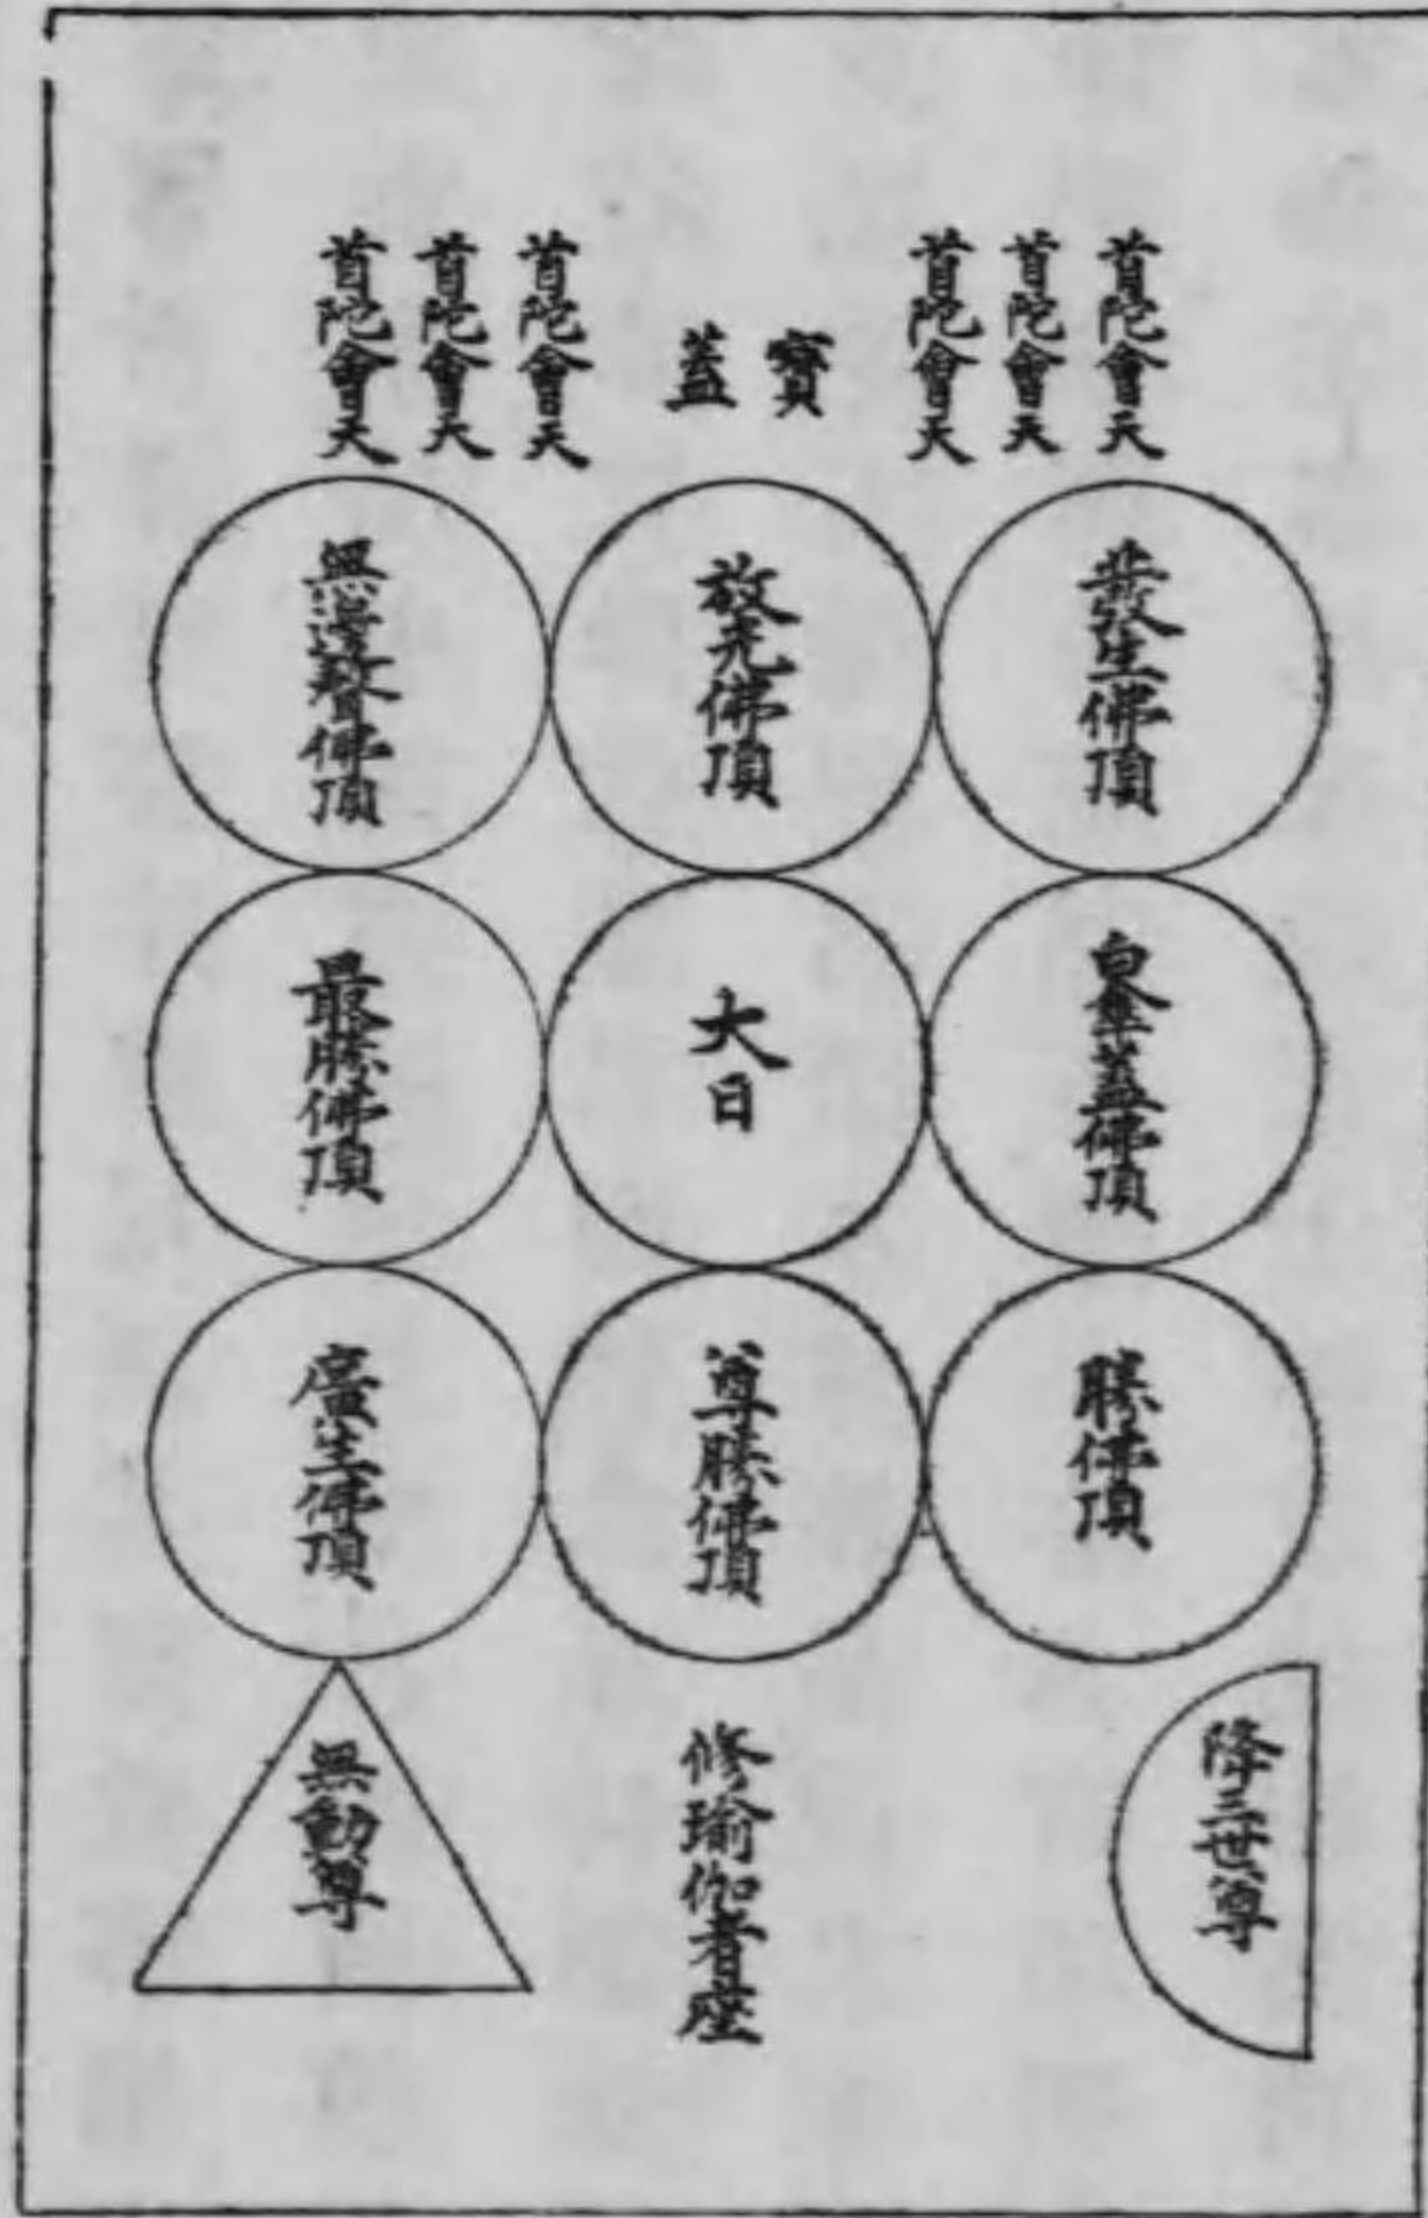 首陀會天
首陀會天
首陀會天
寶蓋
首陀會天
首陀會天
首陀會天
發生佛頂
放光佛頂
無邊聲佛頂
白傘蓋佛頂
大日
最勝佛頂
勝佛頂
尊勝佛頂
廣生佛頂
降三世尊
修瑜伽者座
無動尊